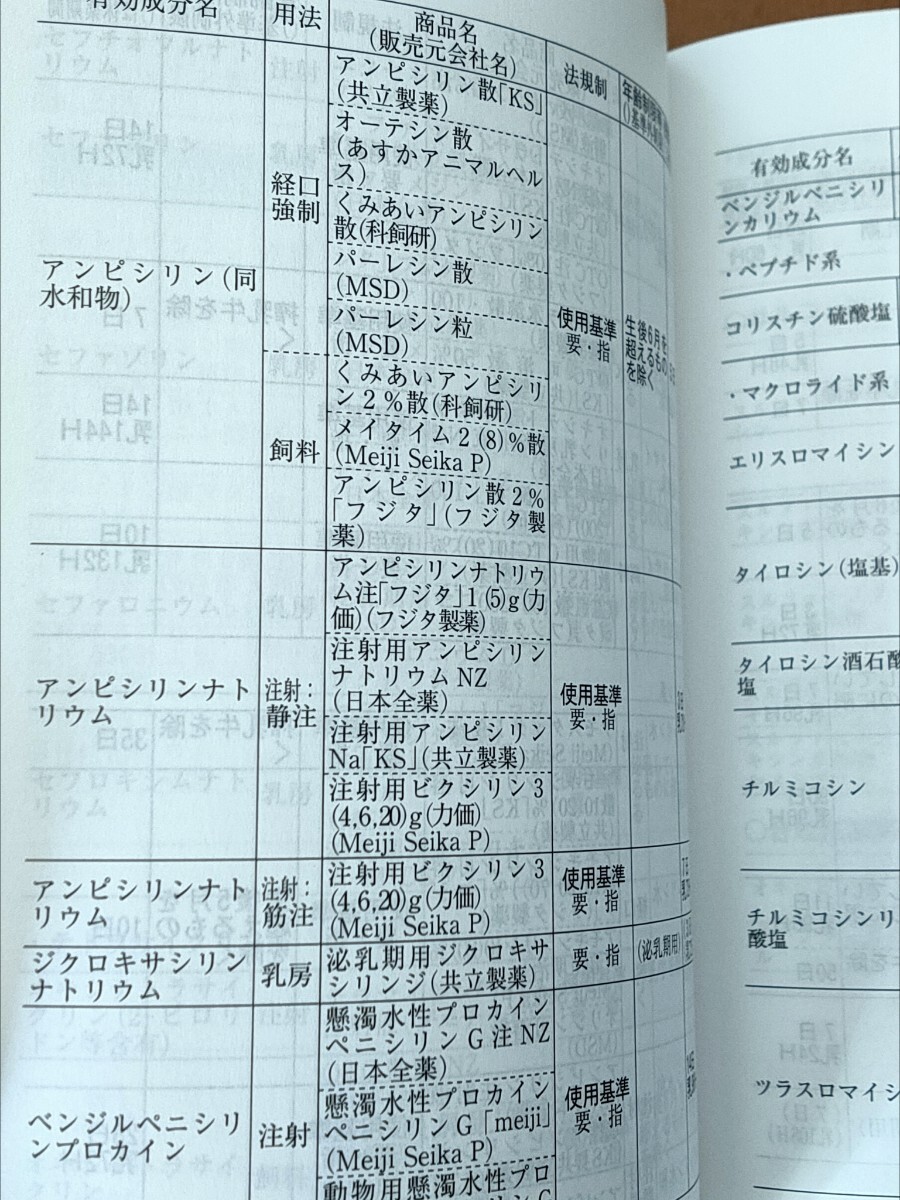 有効成分名
用法
商品名
(販売元会社名)
法規制
アンピシリン(同
水和物)
経口
強制
アンピシリン散「KS」
(共立製薬)
オーテシン散
(あすかアニマルヘル
ス)
くみあいアンピシリン
散(科飼研)
パーレシン散
(MSD)
パーレシン粒
(MSD)
飼料
くみあいアンピシリ
ン2%散(科飼研)
メイタイム2(8)%散
(Meiji Seika P)
アンピシリン散2%
「フジタ」(フジタ製
薬)
使用基準
要・指
生後6月を
超えるもの
を除く
アンピシリンナト
リウム
注射:
静注
アンピシリンナトリウ
ム注「フジタ」1(5)g(力
価)(フジタ製薬)
注射用アンピシリン
ナトリウムNZ
(日本全薬)
注射用アンピシリン
Na「KS」(共立製薬)
注射用ビクシリン3
(4,6,20)g(力価)
(Meiji Seika P)
使用基準
要・指
アンピシリンナト
リウム
注射:
筋注
注射用ビクシリン3
(4,6,20)g(力価)
(Meiji Seika P)
使用基準
要・指
ジクロキサシリン
ナトリウム
乳房
泌乳期用ジクロキサ
シリンジ(共立製薬)
要・指
(泌乳期用)
ベンジルペニシリ
ンプロカイン
注射
懸濁水性プロカイン
ペニシリンG注NZ
(日本全薬)
懸濁水性プロカイン
ペニシリンG「meiji」
(Meiji Seika P)
動物用懸濁水性プロ
使用基準
要・指
有効成分名
ベンジルペニシリ
ンカリウム
・ペプチド系
コリスチン硫酸塩
・マクロライド系
エリスロマイシン
タイロシン(塩基)
タイロシン酒石酸
塩
チルミコシン
チルミコシンリ
酸塩
ツラスロマイシ